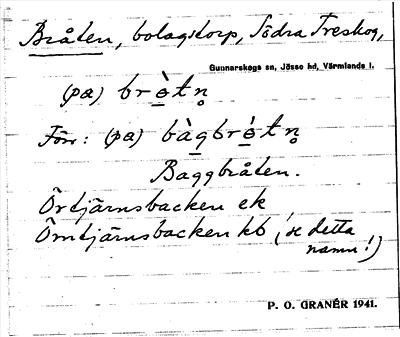 Bråten, bolagstorp, Södra Treskog,
Gunnarskogs sn, Jösse hd, Värmlands l.
(pa) brò̲tn̥
Förr: (pa) bàg̲brò̲tn̥
Baggbråten.
Örtjärnsbacken ek
Ömtjärnsbacken kb (se detta
namn!)
P. O. GRANÉR 1941.